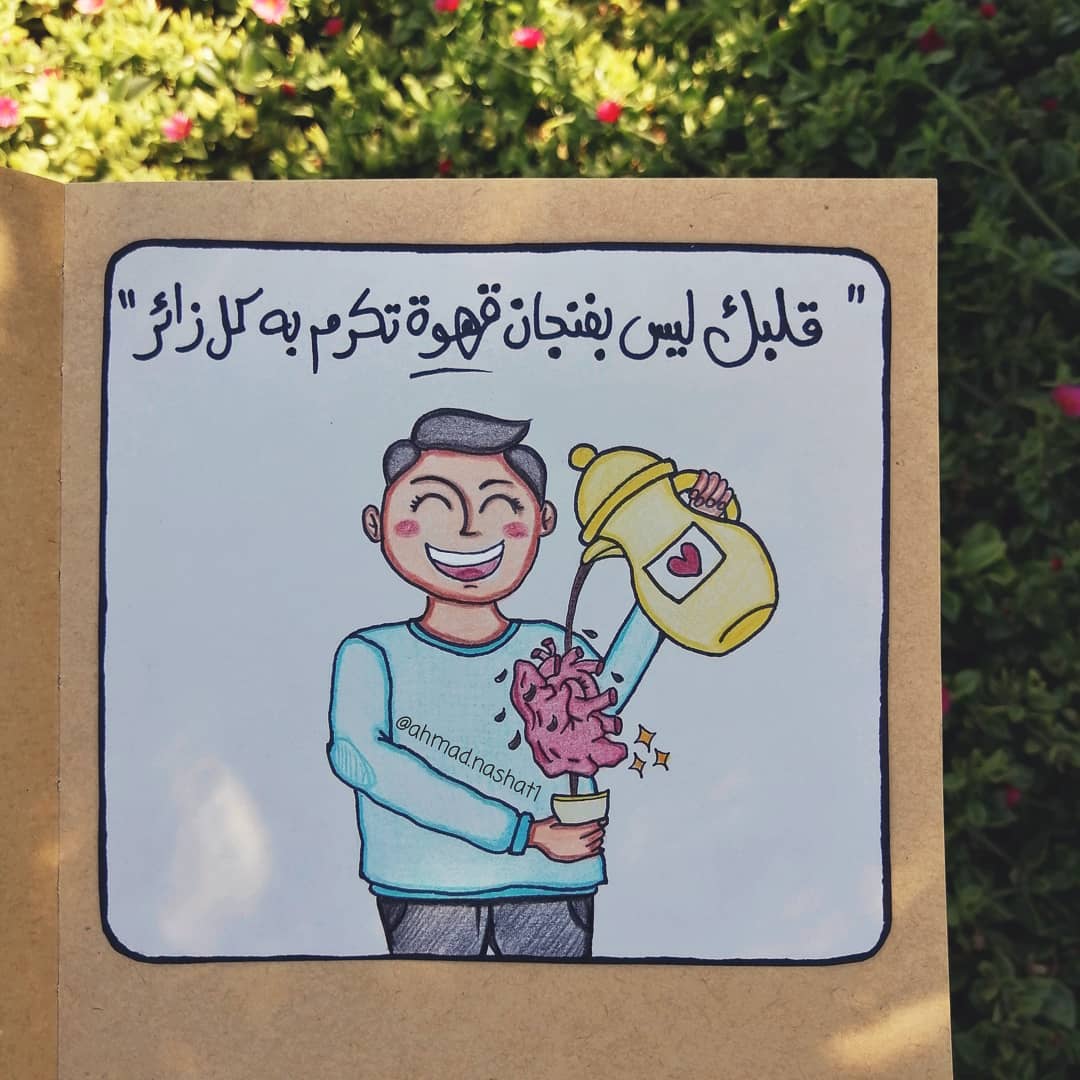 " قلبك ليس بفنجان قهوة تكرم به كل زائر "
@ahmad.nashat1